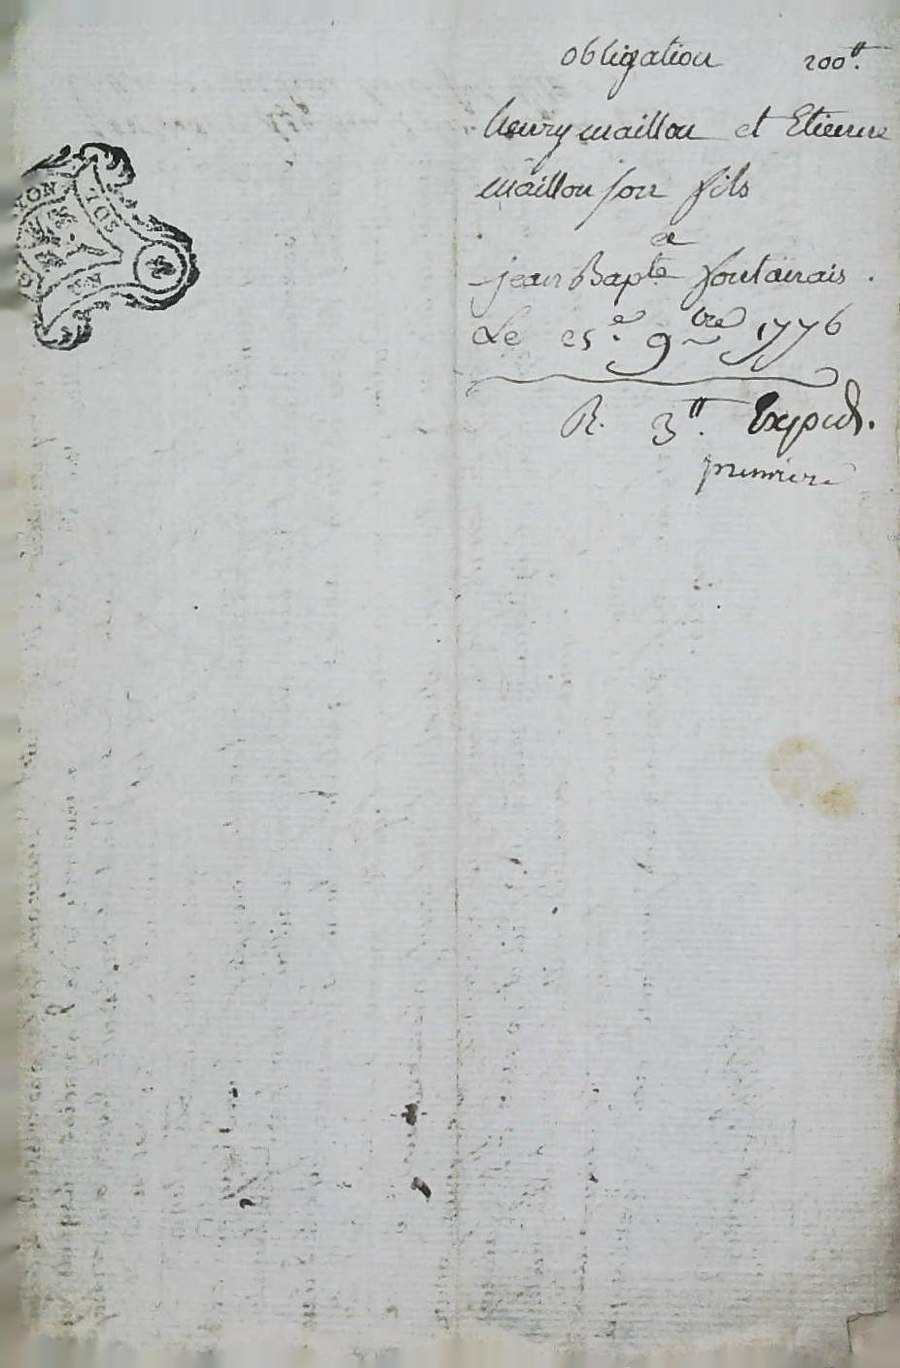 obligation 200ᵗᵗ.
henry maillon et Etienne
maillon son fils
a
jean Bapte fontanais.
Le 25.e 9bre 1776
R. 3ᵗᵗ. Exped.
premiere
YON
SOL